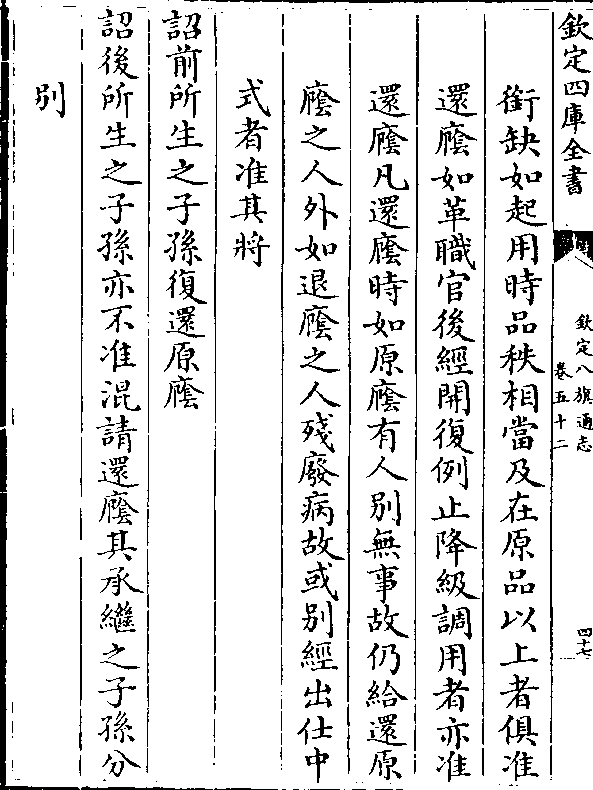 欽定四庫全書
欽定八旗通志
卷五十二
四十七
銜缺如起用時品秩相當及在原品以上者俱准
還廕如革職官後經開復例止降級調用者亦准
還廕凡還廕時如原廕有人別無事故仍給還原
廕之人外如退廕之人殘廢病故或别經出仕中
式者准其將
詔前所生之子孫復還原廕
詔後所生之子孫亦不准混請還廕其承繼之子孫分
别